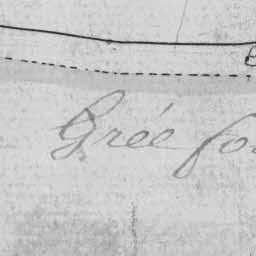 Grée fo